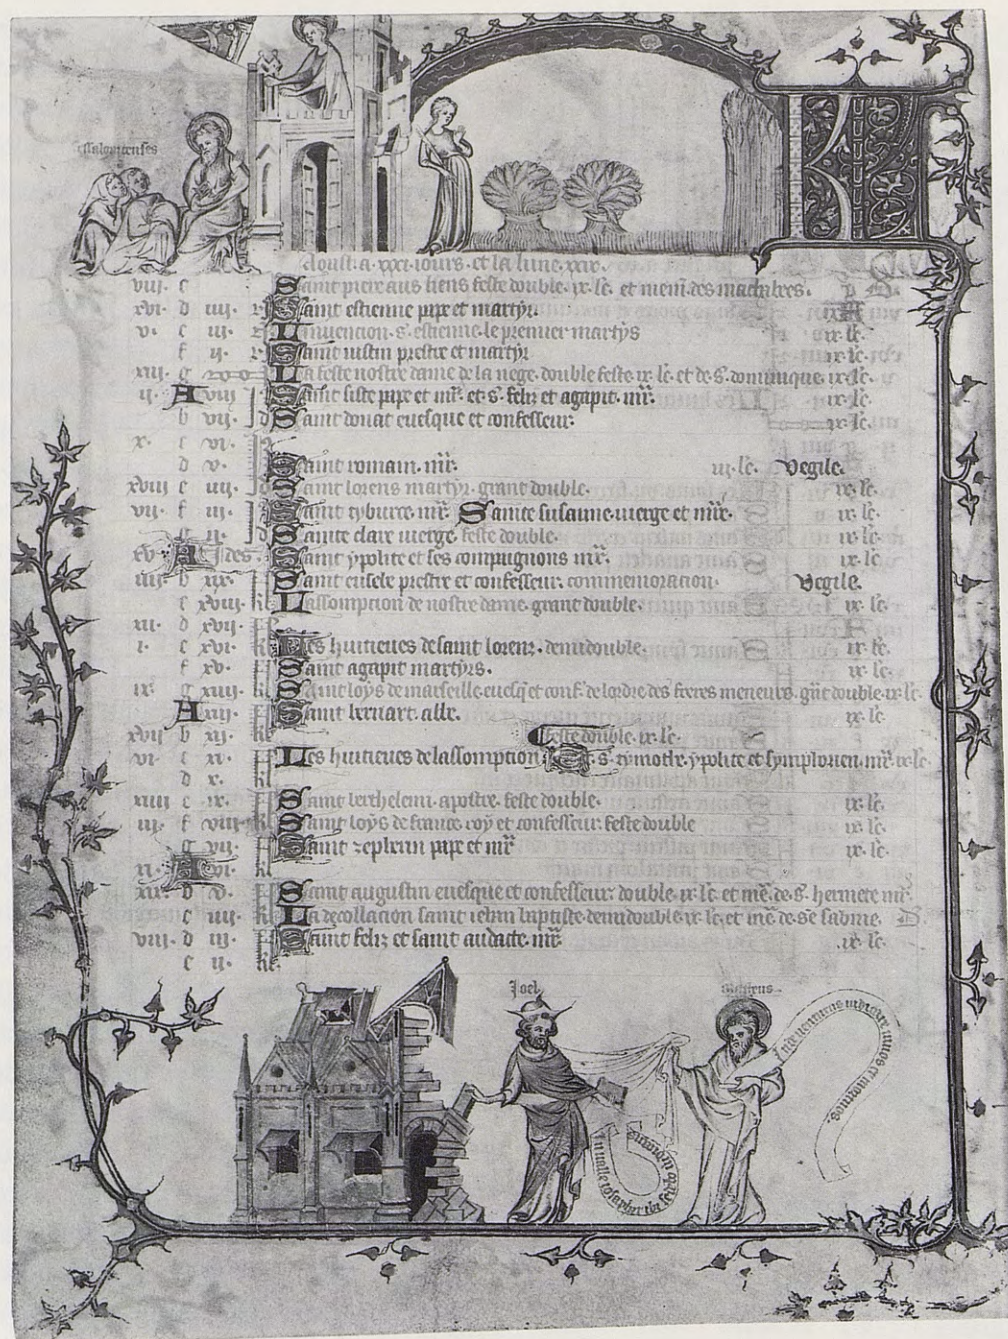 Aoust a xxxi iours et la lune xxix
viii c Saint pierre aus liens feste double ix lc et mem des machabees
xvi d iiii Saint estienne pape et martyr ix lc
v e iii Linvencion s estienne le premier martyr ix lc
f ii Saint iustin prestre et martyr ix lc
xiii g La feste nostre dame de la nege double feste ix lc et de s dominique ix lc
ii A viii Saint siste pape et mr et s felix et agapit mr ix lc
b vii Saint donat euesque et confesseur ix lc
x c vi
d v Saint romain mr iii lc Vegile
xviii e iiii Saint lorens martyr grant double ix lc
vii f iii Saint tyburce mr Sainte susanne uierge et mr ix lc
g ii Sainte clare uierge feste double ix lc
xv A ides Saint ypolite et ses compaignons mr ix lc
iiii b xix kl Saint eusebe prestre et confesseur commemoracion Vegile
c xviii kl Lassomption de nostre dame grant double ix lc
xii d xvii
i e xvi kl Les huitieues de saint lorenz demidouble ix lc
f xv kl Saint agapit martyrs ix lc
ix g xiiii kl Saint loys de marseille euesq et conf de lordre des freres meneurs gnt double ix lc
A xiii kl Saint bernart abbe ix lc
xvii b xii kl feste double ix lc
vi c xi kl Les huitieues de lassomption s tymothe ypolite et symphorien mr ix lc
d x kl
xiiii e ix kl Saint berthelemi apostre feste double ix lc
iii f viii kl Saint loys de france roy et confesseur feste double ix lc
g vii Saint zepherin pape et mr ix lc
xi A vi kl
xix b v Saint augustin euesque et confesseur double ix lc et me de s hermete mr
c iiii kl La decollacion saint iehan baptiste demidouble ix lc et me de se sabine
viii d iii kl Saint felix et saint audacte mr ix lc
e ii kl
Ioel
Matheus
In valle iosaphat ibi sedebo ut iudicem
Inde venturus iudicare uiuos et mortuos